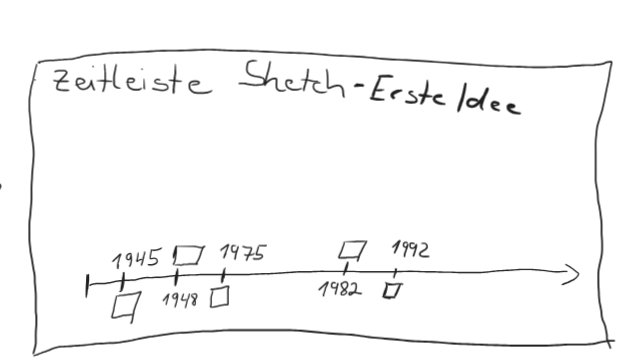 Zeitleiste Sketch-Erste Idee
1945 1975 1992
1948 1982